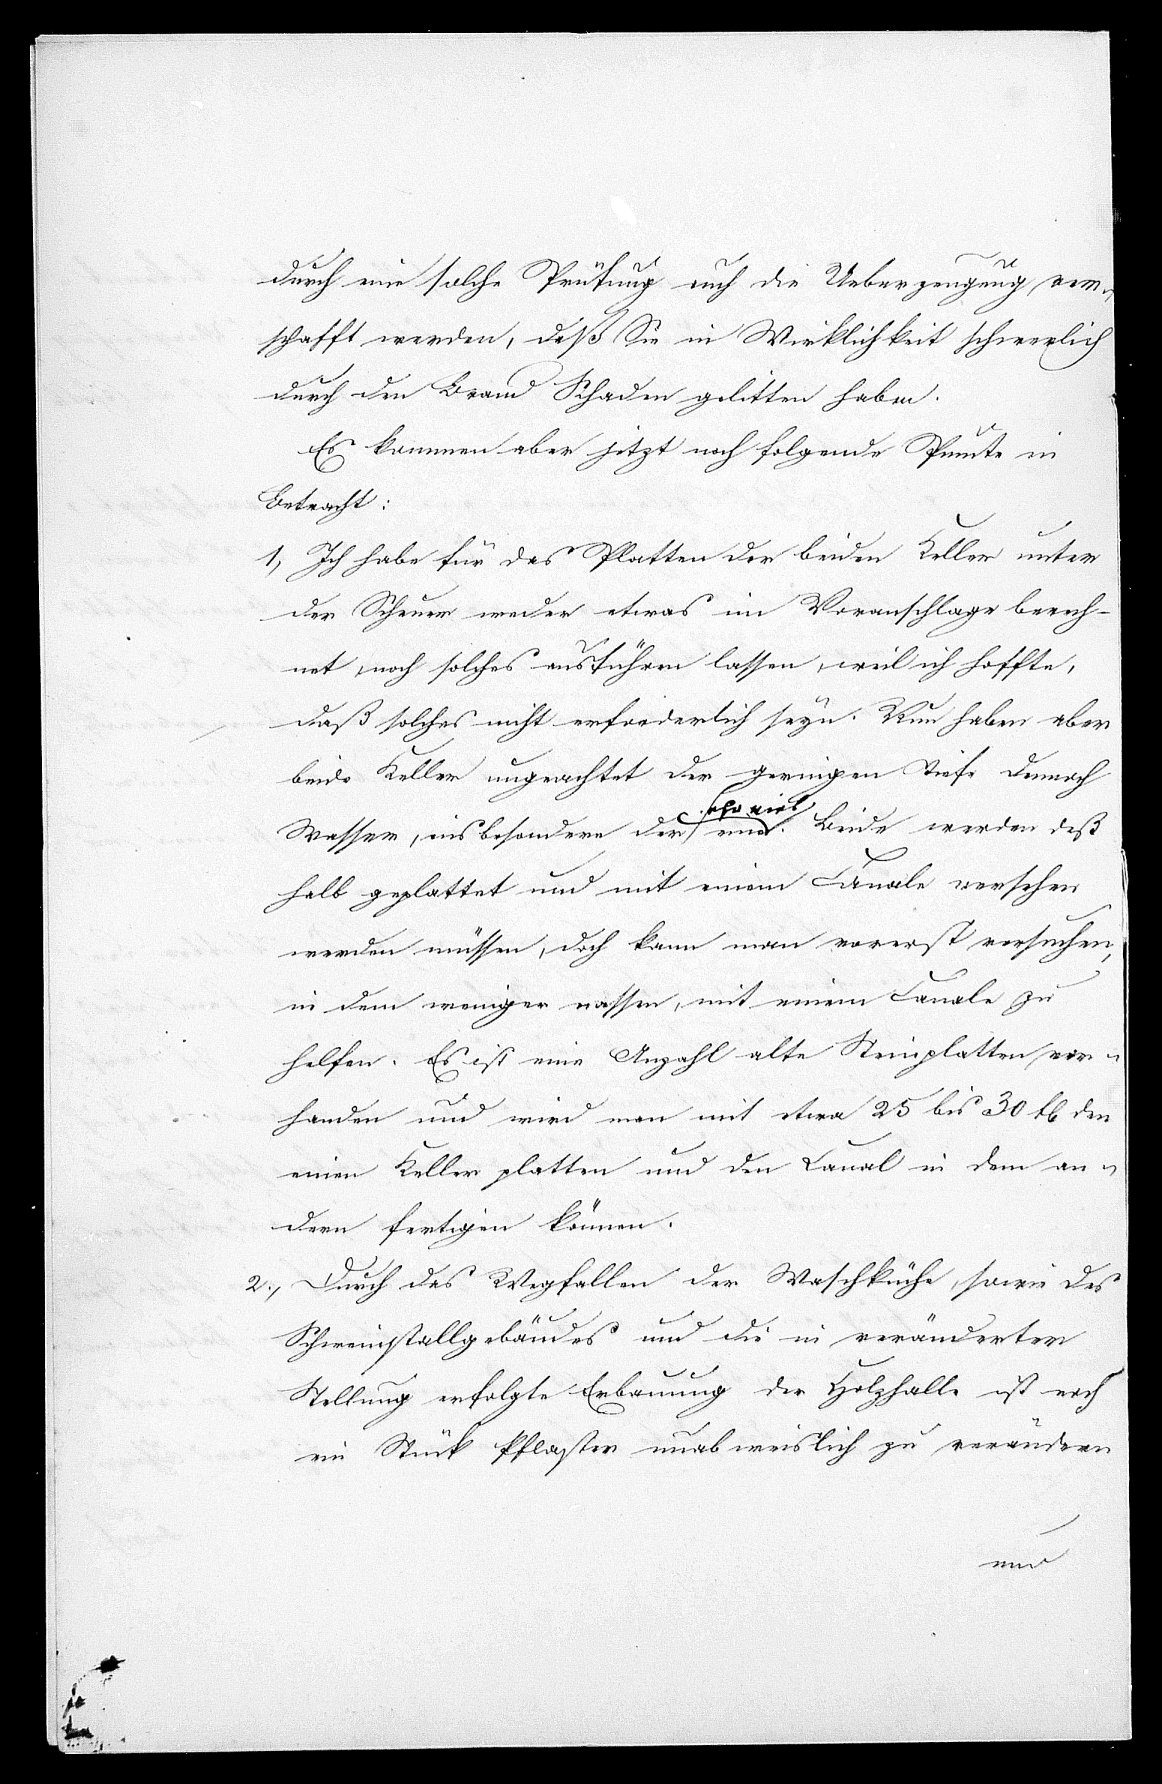 durch eine solche Prüfung auch die Ueberzeugung ver-
schafft werden, daß Sie in Wirklichkeit schwerlich
durch den Brand Schaden gelitten haben.
Es kommen aber jetzt noch folgende Punkte in
Betracht:
1, Ich habe für das Platten der beiden Keller unter
der Scheuer weder etwas im Voranschlage berech-
net, noch solches ausführen lassen, weil ich hoffte,
daß solches nicht erforderlich seyn. Nun haben aber
beide Keller ungeachtet der geringen Tiefe dennoch
sehr viel
Wasser, insbesondere der eine. Beide werden deß
halb geplattet und mit einem Canale versehen
werden müssen, doch kann man vorerst versuchen,
in dem weniger nassen, mit einem Canale zu
helfen. Es ist eine Anzahl alte Steinplatten vor-
handen und wird man mit etwa 25 bis 30 fl den
einen Keller platten und den Canal in dem an-
dern fertigen können.
2., Durch das Wegfallen der Waschküche, sowie des
Schweinstallgebäudes und die in veränderter
Stellung erfolgte Erbauung der Holzhalle ist noch
ein Stück Pflaster unabweislich zu verändern
und